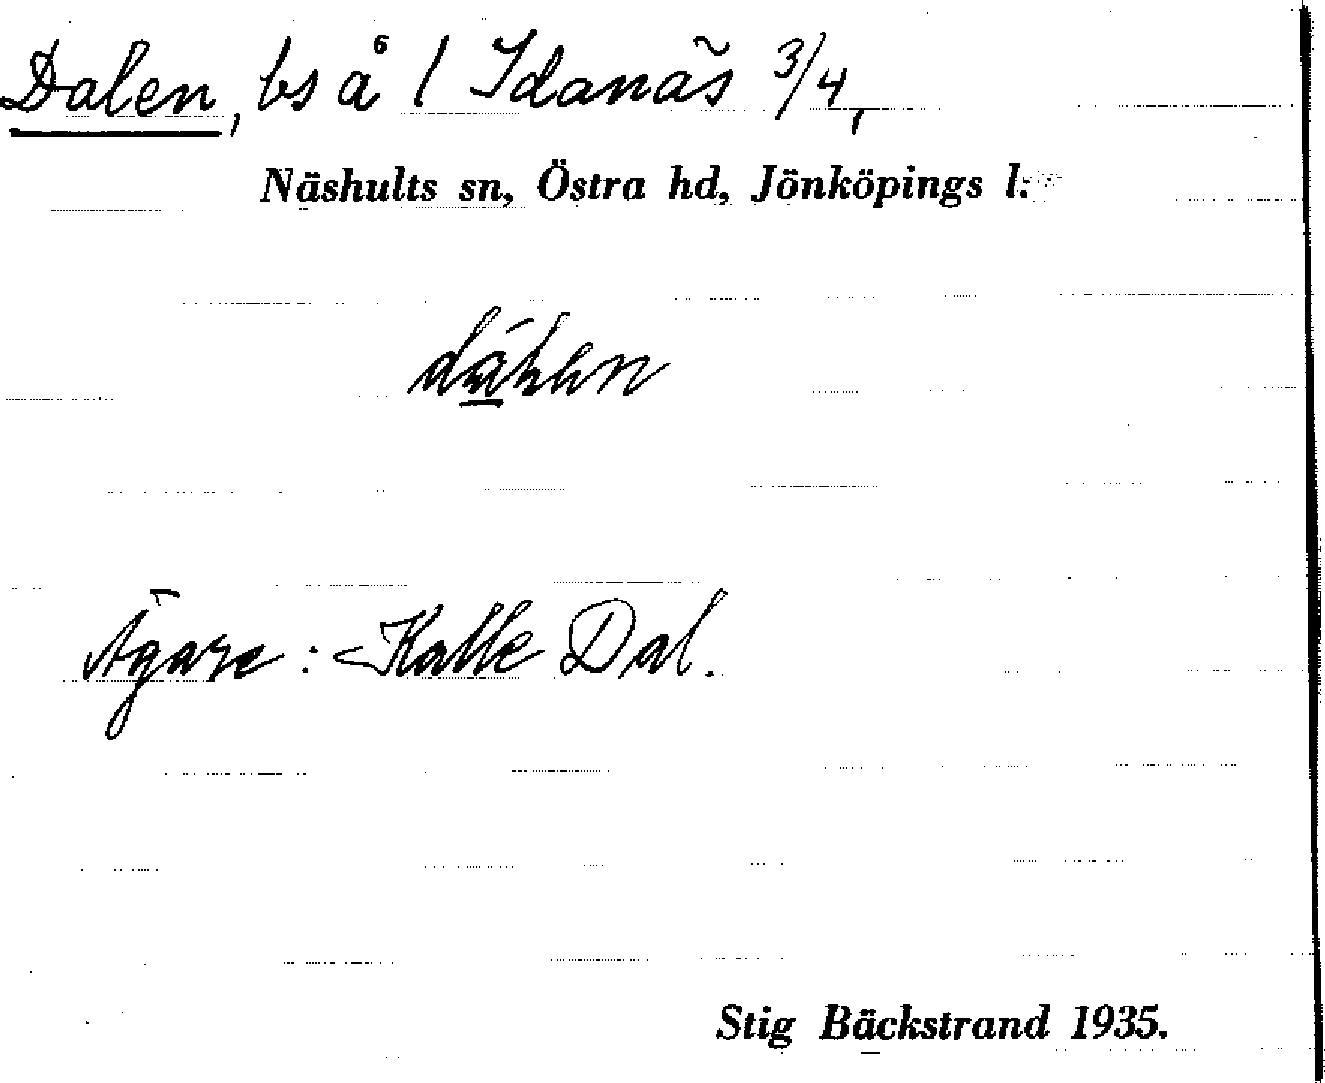 Dalen, bs å 1 Idanäs 3/4,
Näshults sn, Östra hd, Jönköpings l.
Ägare: Kalle Dal.
Stig Bäckstrand 1935.